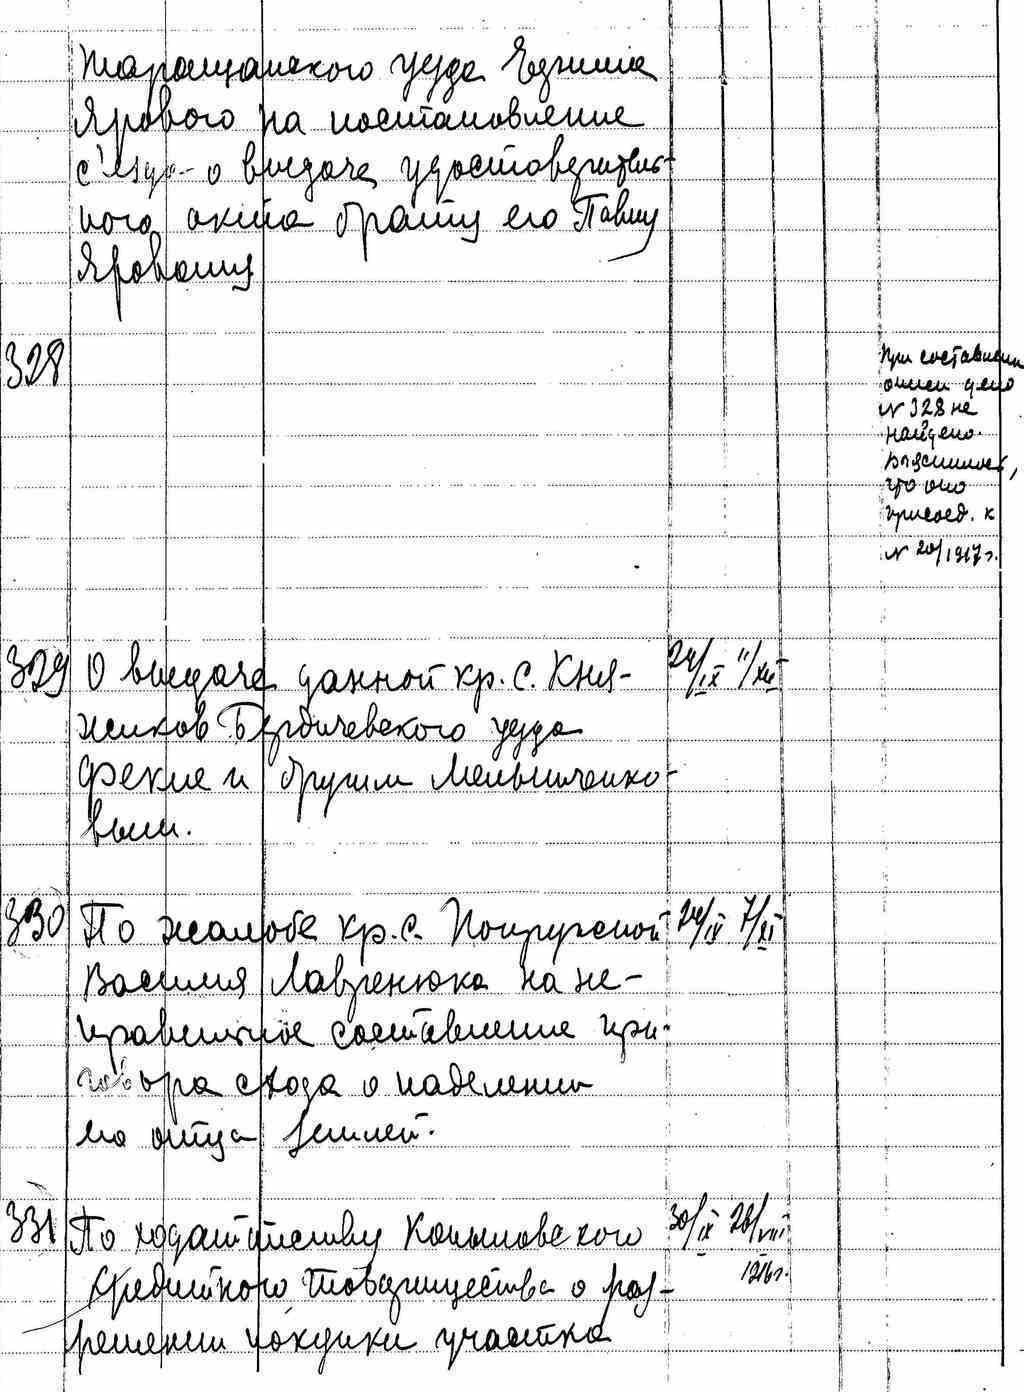 Таращанского уезда Евгения
Ярового на постановление
с'езда о выдаче удостоверитель-
ного акта брату его Павлу
Яровому
328
При составлении
описи дело
N 328 не
найдено.
Выяснилось,
что оно
присоед. к
N 20/1917 г.
329 О выдаче данной кр. с. Кня-
жиков Бердичевского уезда
Фекле и другим Мельниченко-
вым.
24/IX 11/XII
330 По жалобе кр. с.
Василия Лавренюка на не-
правильное составление при-
говора схода о наделении
его отца землей.
24/IX 7/XI
331 По ходатайству
Кредитного товарищества о раз-
решении покупки участка
30/IX 28/VIII
1916 г.